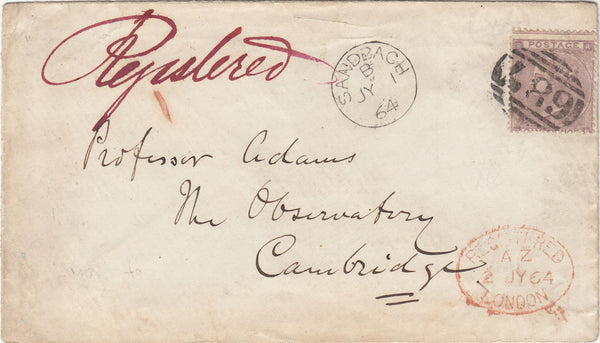 Registered
SANDBACH
B
JY 1
64
POSTAGE
Professor Adams
The Observatory
Cambridge
REGISTERED
A Z
2 JY 64
LONDON